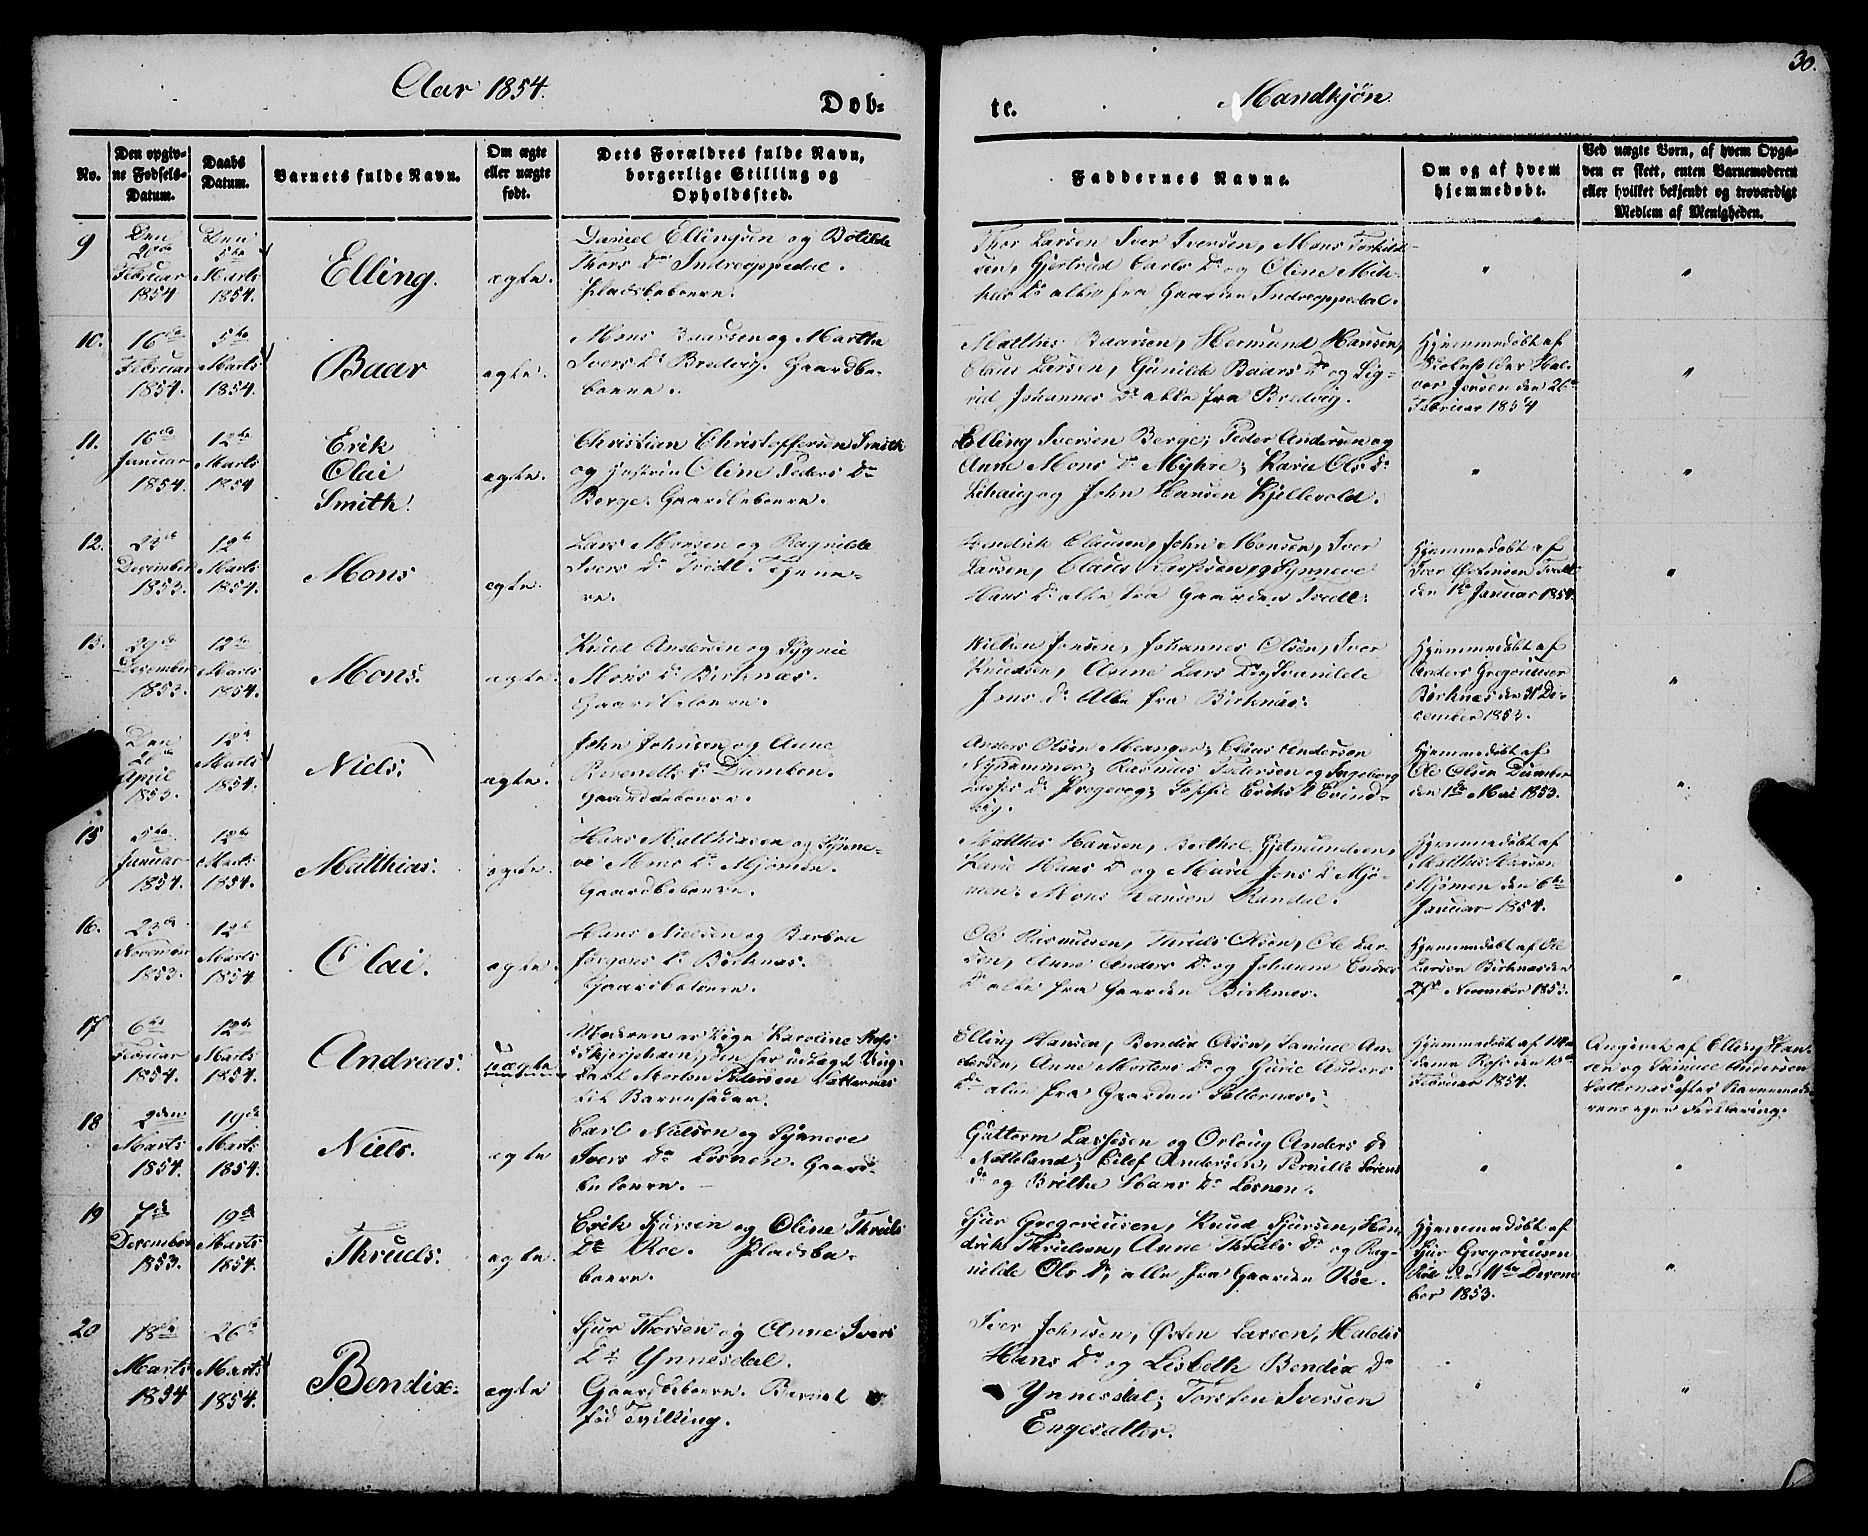 30.
Aar 1854.
Døb-
te.
Mandkjøn
No.
Den opgiv-
ne Fødsels-
Datum.
Daabs
Datum.
Barnets fulde Navn.
Om ægte
eller uægte
født.
Dets Forældres fulde Navn,
borgerlige Stilling og
Opholdssted.
Faddernes Navne.
Om og af hvem
hjemmedøbt.
Ved uægte Børn, af hvem Opga-
ven er skeet, enten Barnemoderen
eller hvilket bekjendt og troværdigt
Medlem af Menigheden.
9
Den
Februar
1854
Den
5te
Marts
1854.
Elling.
ægte.
Daniel Ellingsen og Botilde
Thors Dr Indreoppedal.
Pladsbeboere.
Thor Larsen Iver Iversen, Mons Torkild-
sen, Gjertrud Carls Dr og Oline Mik-
kels Dr alle fra Gaarden Indreoppedal.
"
"
10.
16de
Februar
1854.
5te
Marts
1854.
Baar
ægte.
Mons Baarsen og Martha
Ivers Dr Bredvig. Gaardbe-
boere.
Matthis Baarsen, Hermund Hansen,
Claus Larsen, Gunilde Baars Dr og Sig-
rid Johannes Dr alle fra Bredvig.
Hjemmedøbt af
Skoleholder Hal-
vor Jensen den 26de
Februar 1854
"
11.
16de
Januar
1854.
12te
Marts
1854
Erik
Olai
Smith.
ægte.
Christian Christoffersen Smith
og Hustru Oline Peders Dr
Berge. Gaardbeboere.
Elling Iversen Berge; Peder Andersen og
Anne Mons Dr Myhre; Kari Ols Dr
Lihaug og John Hansen Kjellevold.
"
"
12.
23de
December
1853.
12te
Marts
1854.
Mons
ægte.
Lars Monsen og Ragnilde
Ivers Dr Tvedt. Tjene-
re.
Hendrik Clausen, John Monsen, Iver
Larsen, Claus Lassesen, og Synneve
Hans Dr alle fra Gaarden Tvedt.
Hjemmedøbt af
Iver Østensen Tvedt
den 1te Januar 1854.
"
13.
29de
December
1853.
12te
Marts
1854.
Mons.
ægte.
Knud Andersen og Sygnie
Mons Dr Birknæs.
Gaardbeboere.
Wilken Jensen, Johannes Olsen, Iver
Knudsen, Anne Lars Dr og Svanilde
Jens Dr Alle fra Birknæs.
Hjemmedøbt af
Anders Gregoriuser
Birknæs den 31 De-
cember 1853.
"
Den
April
1853.
12te
Marts
1854.
Niels.
ægte.
John Johnsen og Anne
Dr Dumben.
Gaardbeboere.
Anders Olsen Meanger; Claus Andersen
Nyhammer; Rasmus Pedersen og Ingeborg
Lasses Dr Sophie Eriks Dr Evind-
vig.
Hjemmedøbt af
Ole Olsen Dumben
den 1te Mai 1853.
"
15
5te
Januar
1854.
12te
Marts
1854.
Matthias.
ægte.
Hans Matthissen og Synne-
ve Mons Dr Mjømen.
Gaardbeboere.
Matthis Hansen, Berthel Gjermundsen,
Kari Hans Dr og Mari Jens Dr Mjø-
men; Mons Hansen Randal.
Hjemmedøbt af
Matthis Hansen
Mjømen den 6te
Januar 1854.
"
16.
23de
November
1853.
12te
Marts
1854
Olai.
ægte.
Hans Nielsen og Barbra
Jørgens Dr Birknæs.
Gaardbeboere.
Ole Rasmussen, Thruels Olsen, Ole Lar-
sen, Anne Anders Dr og Johanne Endres
Dr alle fra Gaarden Birknæs.
Hjemmedøbt af Ole
Larsen Birknæs den
27de November 1853.
"
17
6te
Februar
1854.
12te
Marts
1854.
Andreas.
uægte
Moderen er Pige Karoline
Skjerjehavn; den har udlagt Ung-
karl Morten Pedersen Sætternæs
til Barnefader.
Elling Hansen, Bendix Olsen, Samuel An-
dersen, Anne Mortens Dr og Guri Anders
Dr alle fra Gaarden Sætternæs.
Hjemmedøbt af Ma-
dame den 10de
Februar 1854.
Angivet af Elling Han-
sen og Samuel Andersen
Sætternæs efter Barnemode-
rens egen Forklaring.
18
2den
Marts
1854.
19de
Marts
1854.
Niels.
ægte
Carl Nielsen og Synneve
Ivers Dr Losnen. Gaard-
beboere.
Guttorm Lassesen og Orloug Anders Dr
Nætteland; Eilef Andersen, Pernille Sørens
Dr og Brithe Hans Dr Losnen.
"
"
19
7de
December
1853.
19de
Marts
1854.
Thruels.
ægte.
Erik Sjursen og Oline Thruels
Dr Røe. Pladsbe-
boere.
Sjur Gregoriusen, Knud Sjursen, Hen-
drik Thruelsen, Anne Thruels Dr og Rag-
nilde Ols Dr, alle fra Gaarden Røe.
Hjemmedøbt af
Sjur Gregoriusen
Røe den 11te Decem-
ber 1853.
"
20
18de
Marts
1854
26de
Marts
1854.
Bendix.
ægte
Sjur Thorsen og Anne Ivers
Dr Ynnesdal.
Gaardbeboere. Barnet er
fød Tvilling.
Iver Johnsen, Østen Larsen, Haldis
Hans Dr og Lisbeth Bendix Dr
Ynnesdal; Torsten Iversen
Engesætter.
"
"